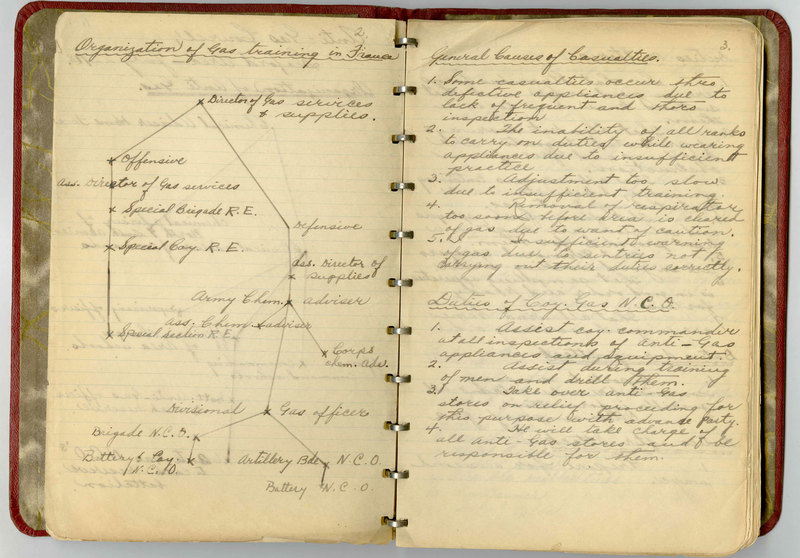 2.
Organization of Gas training in France
Director of Gas services
& supplies.
Offensive
Ass. Director of Gas services
Special Brigade R.E.
Defensive
Special Coy. R.E.
Ass. Director of
supplies
Army Chem. adviser
Ass. Chem. adviser
Special section R.E.
Corps
Chem. Adv.
Divisional Gas officer
Brigade N.C.O.
Battery & Coy. Artillery Bde. N.C.O.
N.C.O.
Battery N.C.O.
3.
General Causes of Casualties.
1. Some casualties occur thro
defective appliances due to
lack of frequent and thoro
inspection
2. The inability of all ranks
to carry on duties while wearing
appliances due to insufficient
practice
3. Adjustment too slow
due to insufficient training.
4. Removal of respirator
too soon before area is cleared
of gas due to want of caution.
5. Insufficient warning
of gas due to sintrys not
carrying out their duties correctly.
Duties of Coy. Gas N.C.O.
1. Assist coy. commander
at all inspections of Anti-Gas
appliances and equipment.
2. Assist during training
of men and drill them.
3. Take over anti Gas
stores on relief proceeding for
this purpose with advance Party.
4. He will take charge of
all anti-Gas stores and be
responsible for them.